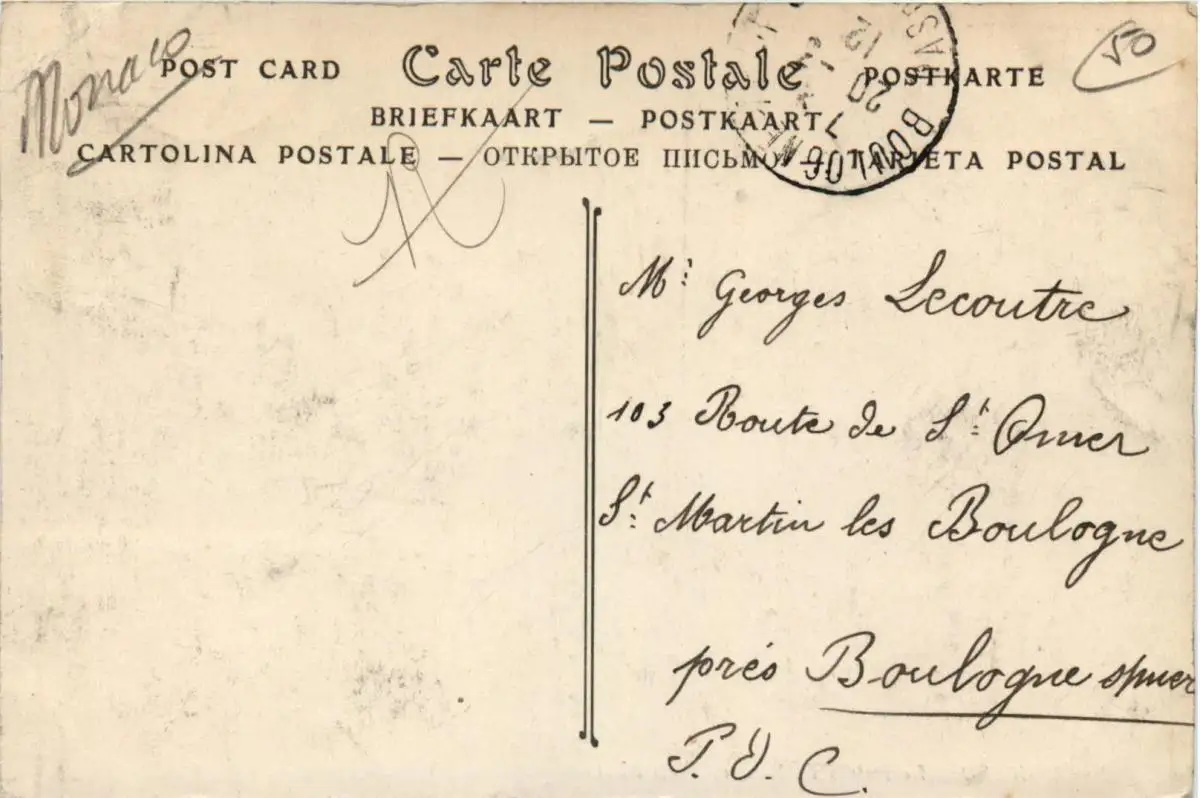 Monaco
50
POST CARD Carte Postale POSTKARTE
BRIEFKAART — POSTKAART
CARTOLINA POSTALE — ОТКРЫТОЕ ПИСЬМО — TARJETA POSTAL
BOULOGNE
20
12
7
Mr Georges Lecoutre
103 Route de St Omer
St Martin les Boulogne
près Boulogne s/mer
P. d. C.